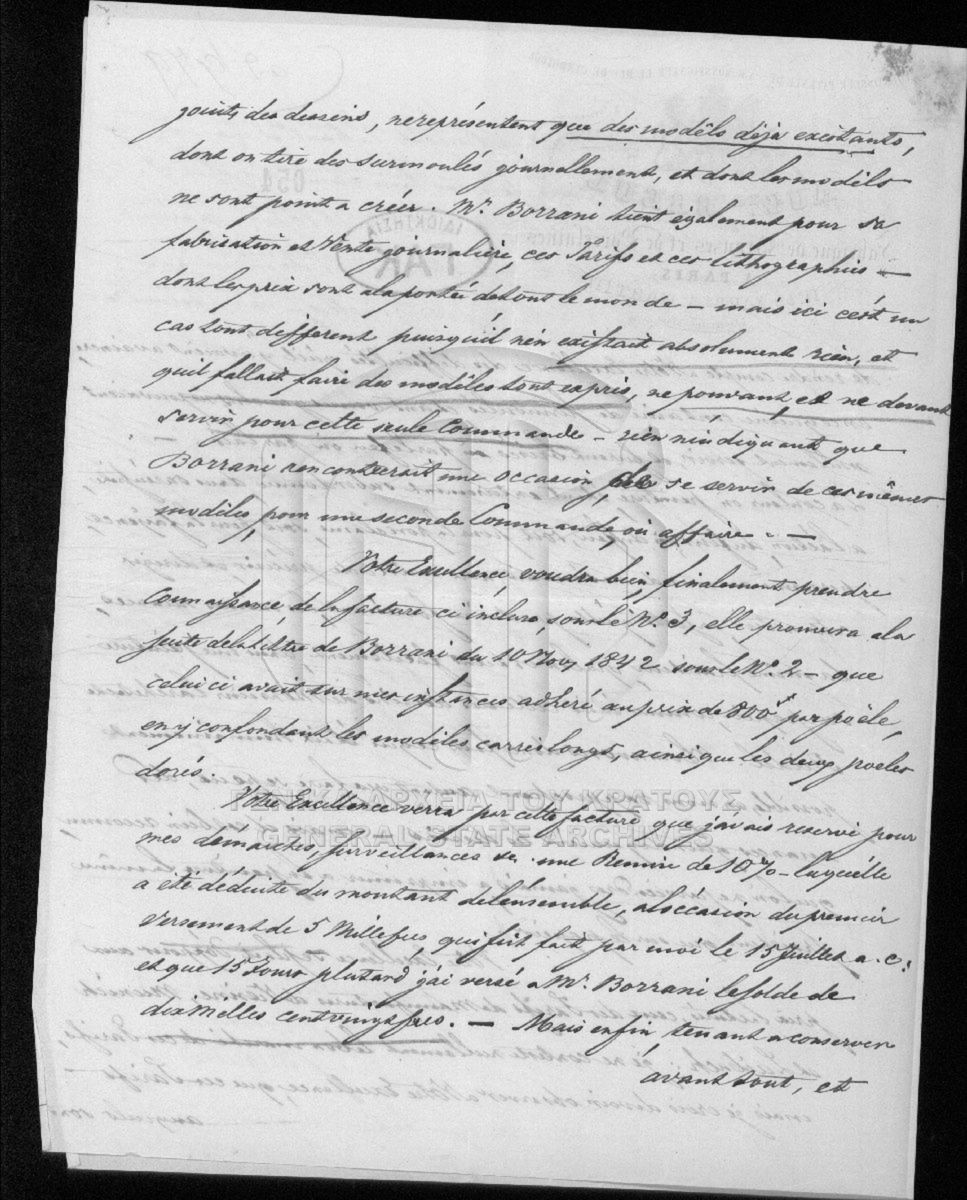 joints des dessins, ne représentent que des modêls déja existants,
dont on tire des surmoulés journellement, et dont les modêls
ne sont point a créer. Mr. Borrani tient egalement pour sa
fabrication et Vente journalière, ces Tarifs et ces lithographies —
dont les prix sont a la portée de tout le monde — mais ici c'est un
cas tout different puisqu'il n'en existait absolument rien, et
qu'il fallait faire des modêles tout exprès, ne pouvant, et ne devant
servir pour cette seule Commande — rien n'indiquant que
Borrani rencontrerait une occasion de se servir de ces mêmes
modèles, pour une seconde Commande, ou affaire. —
Votre Excellence, voudra bien, finalement prendre
Connaissance, de la facture ci incluse, sous le No. 3, elle prouvera a la
suite de la lettre de Borrani du 10 Nov, 1842 sous le No. 2 — que
celui ci avait sur mes instances adhéré au prix de 800f par poële,
en y confondant les modèles carrés longs, ainsi que les deux poëles
dorés.
Votre Excellence verra par cette facture que j'avais reservé pour
mes démarches, surveillances &c. une Remise de 10% — laquelle
a été déduite du montant de l'ensemble, a l'occasion du premier
versement de 5 Mille frcs, qui fut fait par moi le 15 Juillet a. c.
et que 15 Jours plutard j'ai versé a Mr. Borrani le solde de
dix Milles cent vingt frcs. — Mais enfin, tenant a conserver
avant tout, et
ΓΕΝΙΚΑ ΑΡΧΕΙΑ ΤΟΥ ΚΡΑΤΟΥΣ
GENERAL STATE ARCHIVES